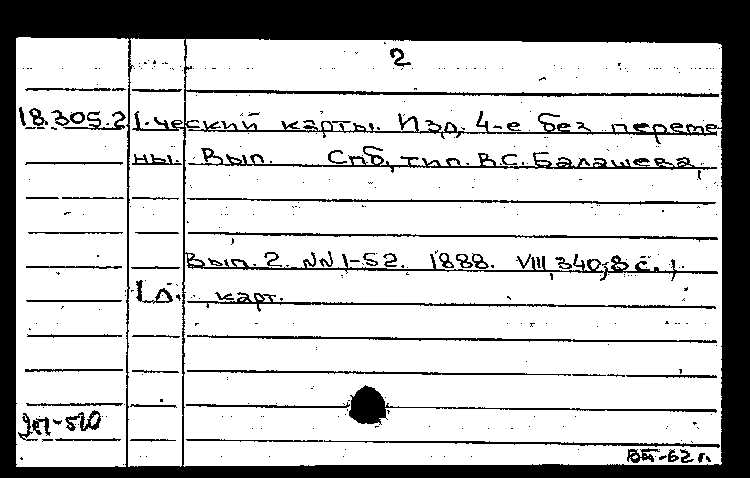 2
18.305.2 1.ческий карты. Изд. 4-е без переме
ны. Вып. Спб, тип. В.С. Балашева,
Вып. 2. NN 1-52. 1888. VIII, 340, 8 с.,
1 л. карт.
ВТ-62 г.